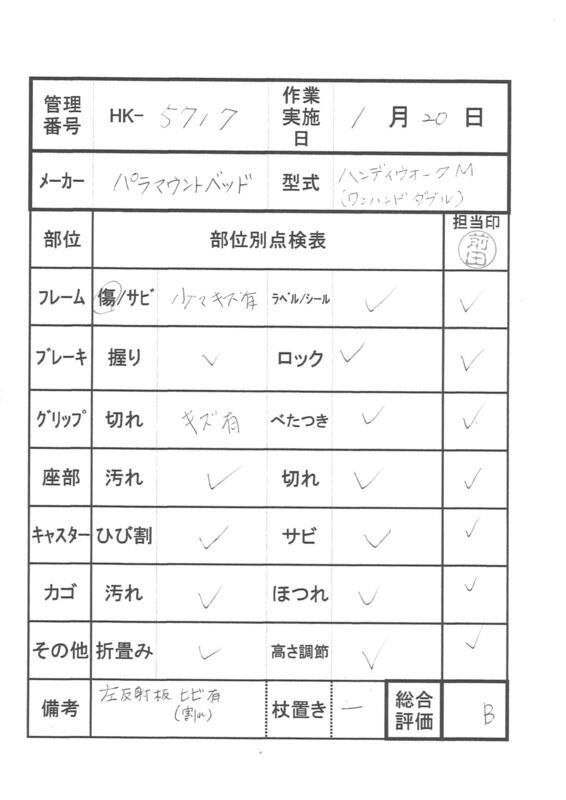 管理番号 HK- 5717 作業実施日 1月20日
メーカー パラマウントベッド 型式 ハンディウォークM (ワンハンドダブル)
部位 部位別点検表 担当印 前田
フレーム 傷/サビ 少々キズ有 ラベル/シール ✓ ✓
ブレーキ 握り ✓ ロック ✓ ✓
グリップ 切れ キズ有 べたつき ✓ ✓
座部 汚れ ✓ 切れ ✓ ✓
キャスター ひび割 ✓ サビ ✓ ✓
カゴ 汚れ ✓ ほつれ ✓ ✓
その他 折畳み ✓ 高さ調節 ✓ ✓
備考 左反射板 ヒビ有 (割れ) 杖置き ー 総合評価 B